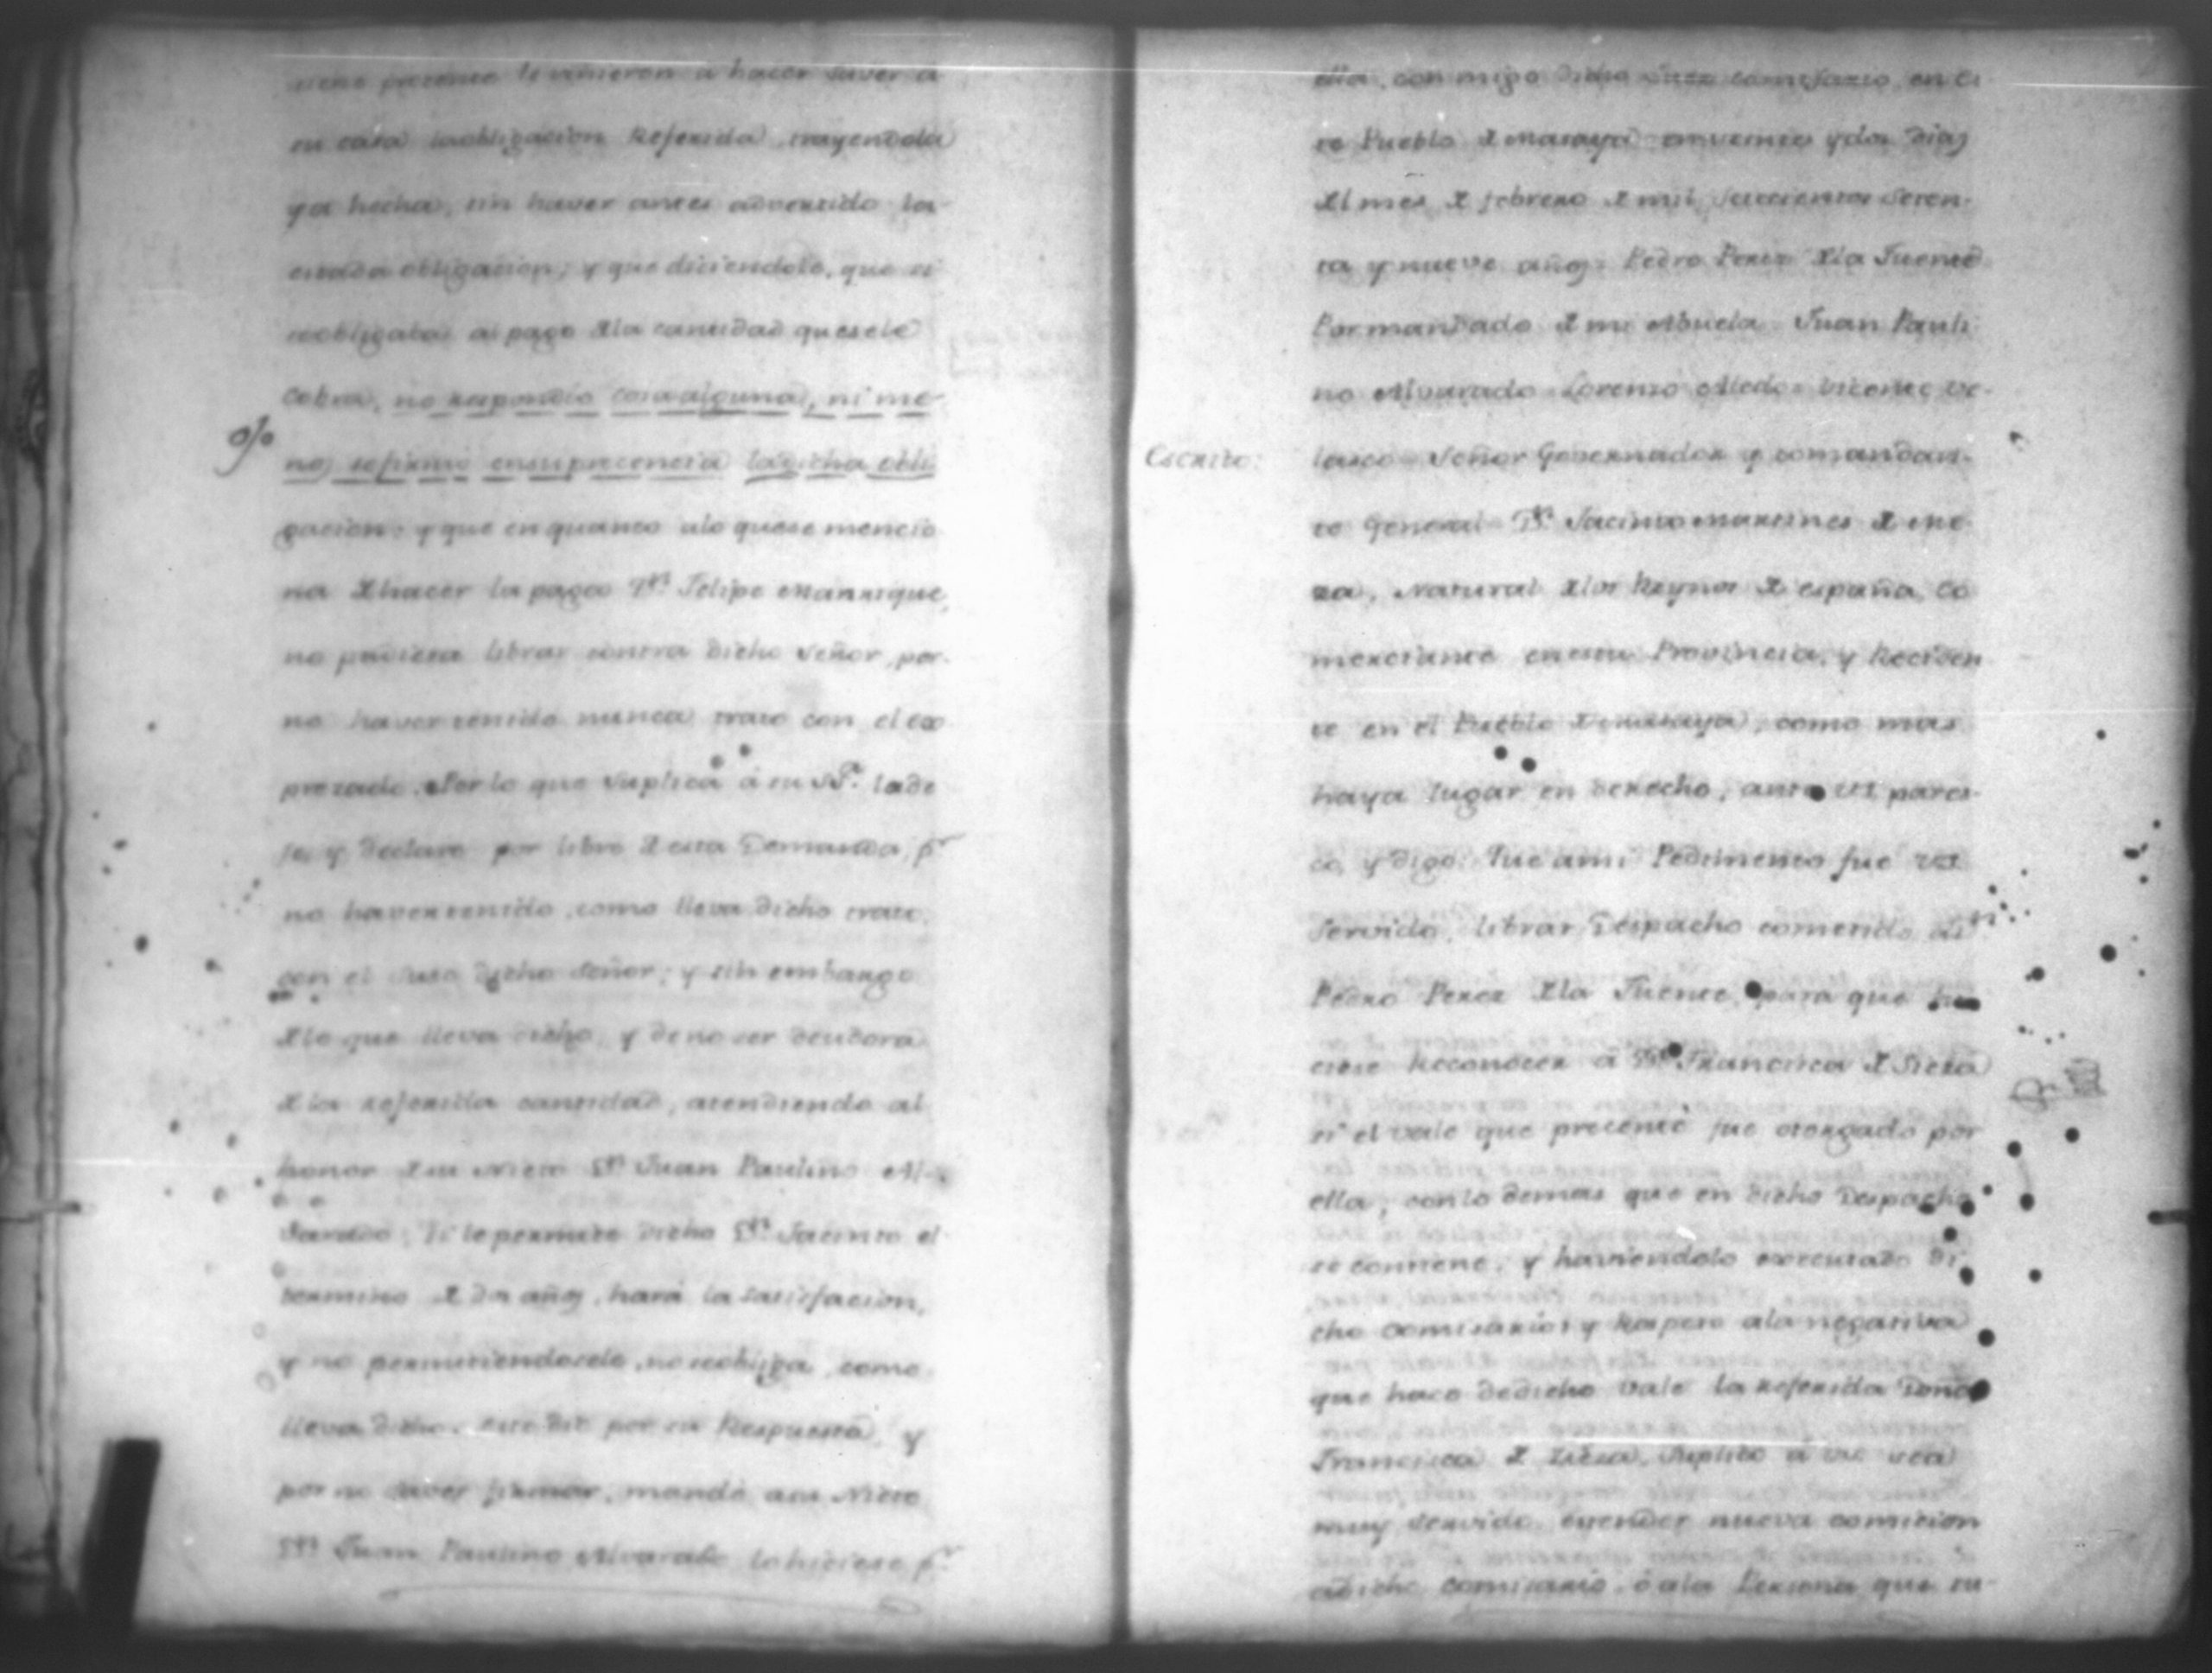 presente le vinieron à hacer saver à
su casa laobligacion Referida, trayendola
ya hecha, sin haver antes advertido la
citada obligacion; y que diciendole, que si
seobligaba al pago dela cantidad quesele
cobra, no respondio cosa alguna, ni me-
nos sefirmò ensuprecencia ladicha obli
gacion: y que en quanto alo quese mencio
na dehacer la paga Dn. Felipe Manrique,
no pudiera librar contra dicho Señor, por
no haver tenido nunca trato con el ex
prezado. Por lo que Suplica à su lade
je, y declare por libre de esta Demanda, pr.
no haver tenido, como lleva dicho trato,
con el suso dicho Señor; y sin embargo
delo que lleva dicho, y de no ser deudora
dela referida cantidad, atendiendo al
honor desu Nieto Dn. Juan Paulino Al-
varado, si le permite dicho Dn. Jacinto el
termino de dos años, hará la satisfacion,
y no permitiendosele, no seobliga, como
lleva dicho. esto diò por su Respuesta, y
por no saver firmar, mandò asu Nieto
Dn. Juan Paulino Alvarado lo hiciese pr.
ella, con migo dicho Juez Comisario, en es-
te Pueblo de Masaya en veinte y dos dias
del mes de febrero de mil setecientos seten-
ta y nueve años. Pedro Perez dela Fuente
Por mandado de mi Abuela Juan Pauli
no Alvarado Lorenzo Vicente Ve-
lasco
Escrito: Señor Governador y comandan-
te General Dn. Jacinto Martines de Me
za, Natural delos Reynos de españa, Co
merciante enesta Provincia, y Reciden
te en el Pueblo de Masaya, como mas
haya lugar en derecho, ante VS. pares-
co, y digo: Que ami Pedimento fue VS.
servido, librar Despacho cometido
Pedro Perez dela Fuente, para que hi
ciese Reconocer à Da. Francisca de Sieza
si el vale que precentè fue otorgado por
ella, con lo demas que en dicho Despacho
se contiene; y haviendolo executado di
cho comisario, y Respeto ala negativa
que hace dedicho vale la referida Doña
Francisca de Sieza, Suplico à VS. sea
muy servido, estender nueva comicion
adicho comisario, ó ala Persona que su-